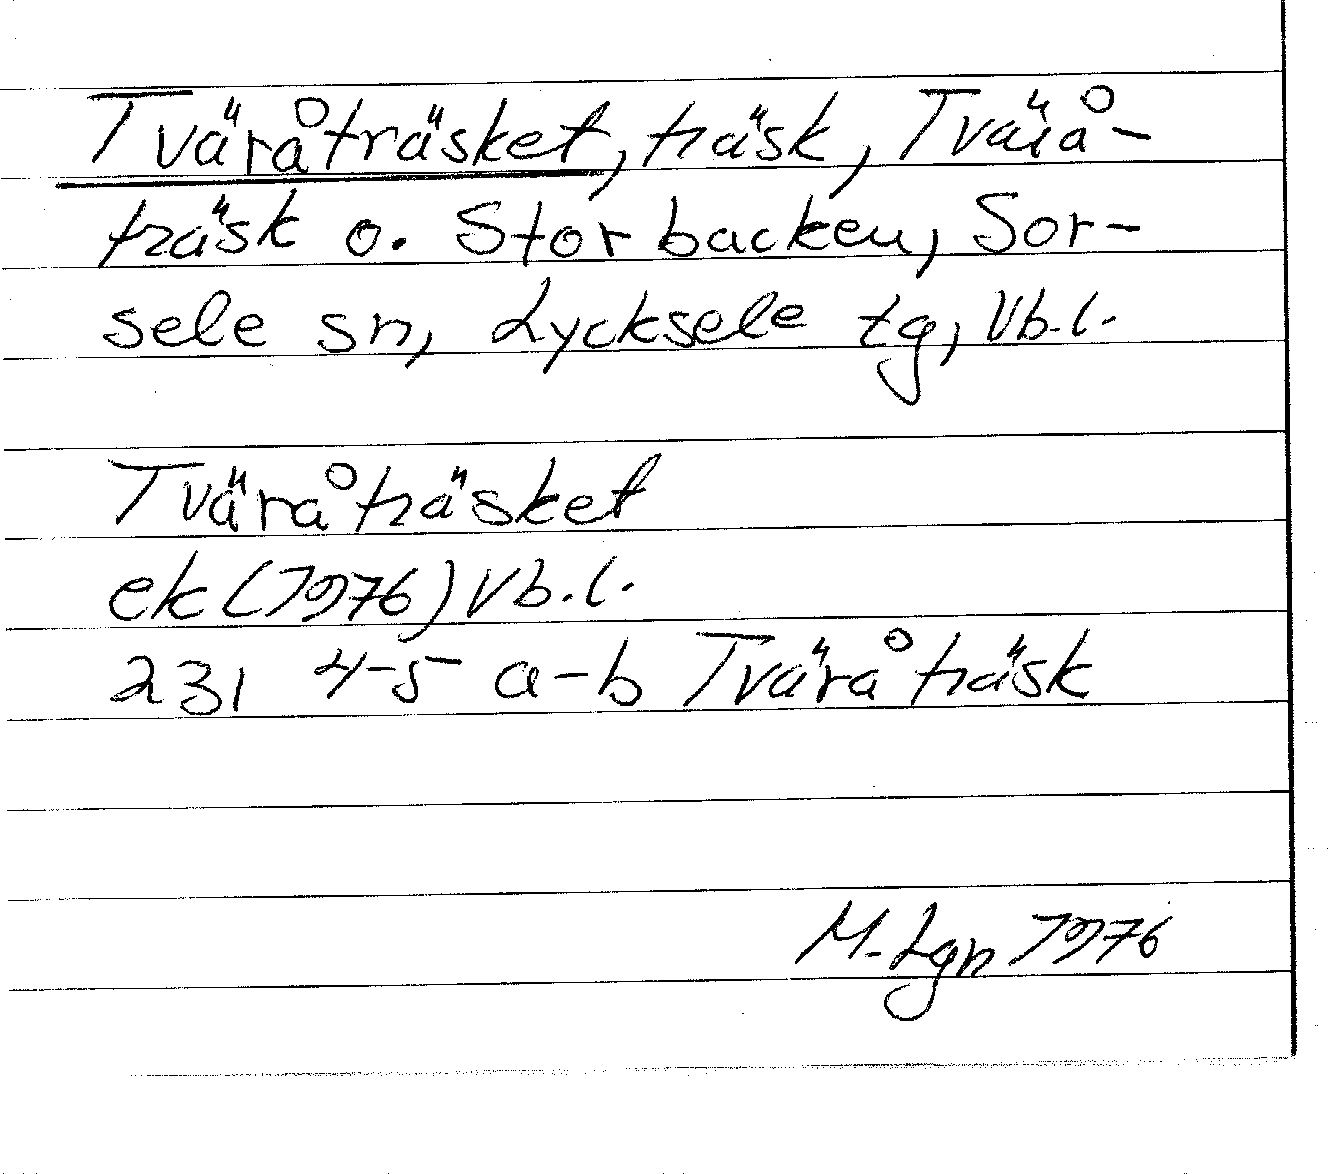 Tväråträsket, träsk, Tvärå-
träsk o. Storbacken, Sor-
sele sn, Lycksele tg, Vb.l.
Tväråträsket
ek (1976) Vb.l.
231 4-5 a-b Tväråträsk
M. Lgn 1976